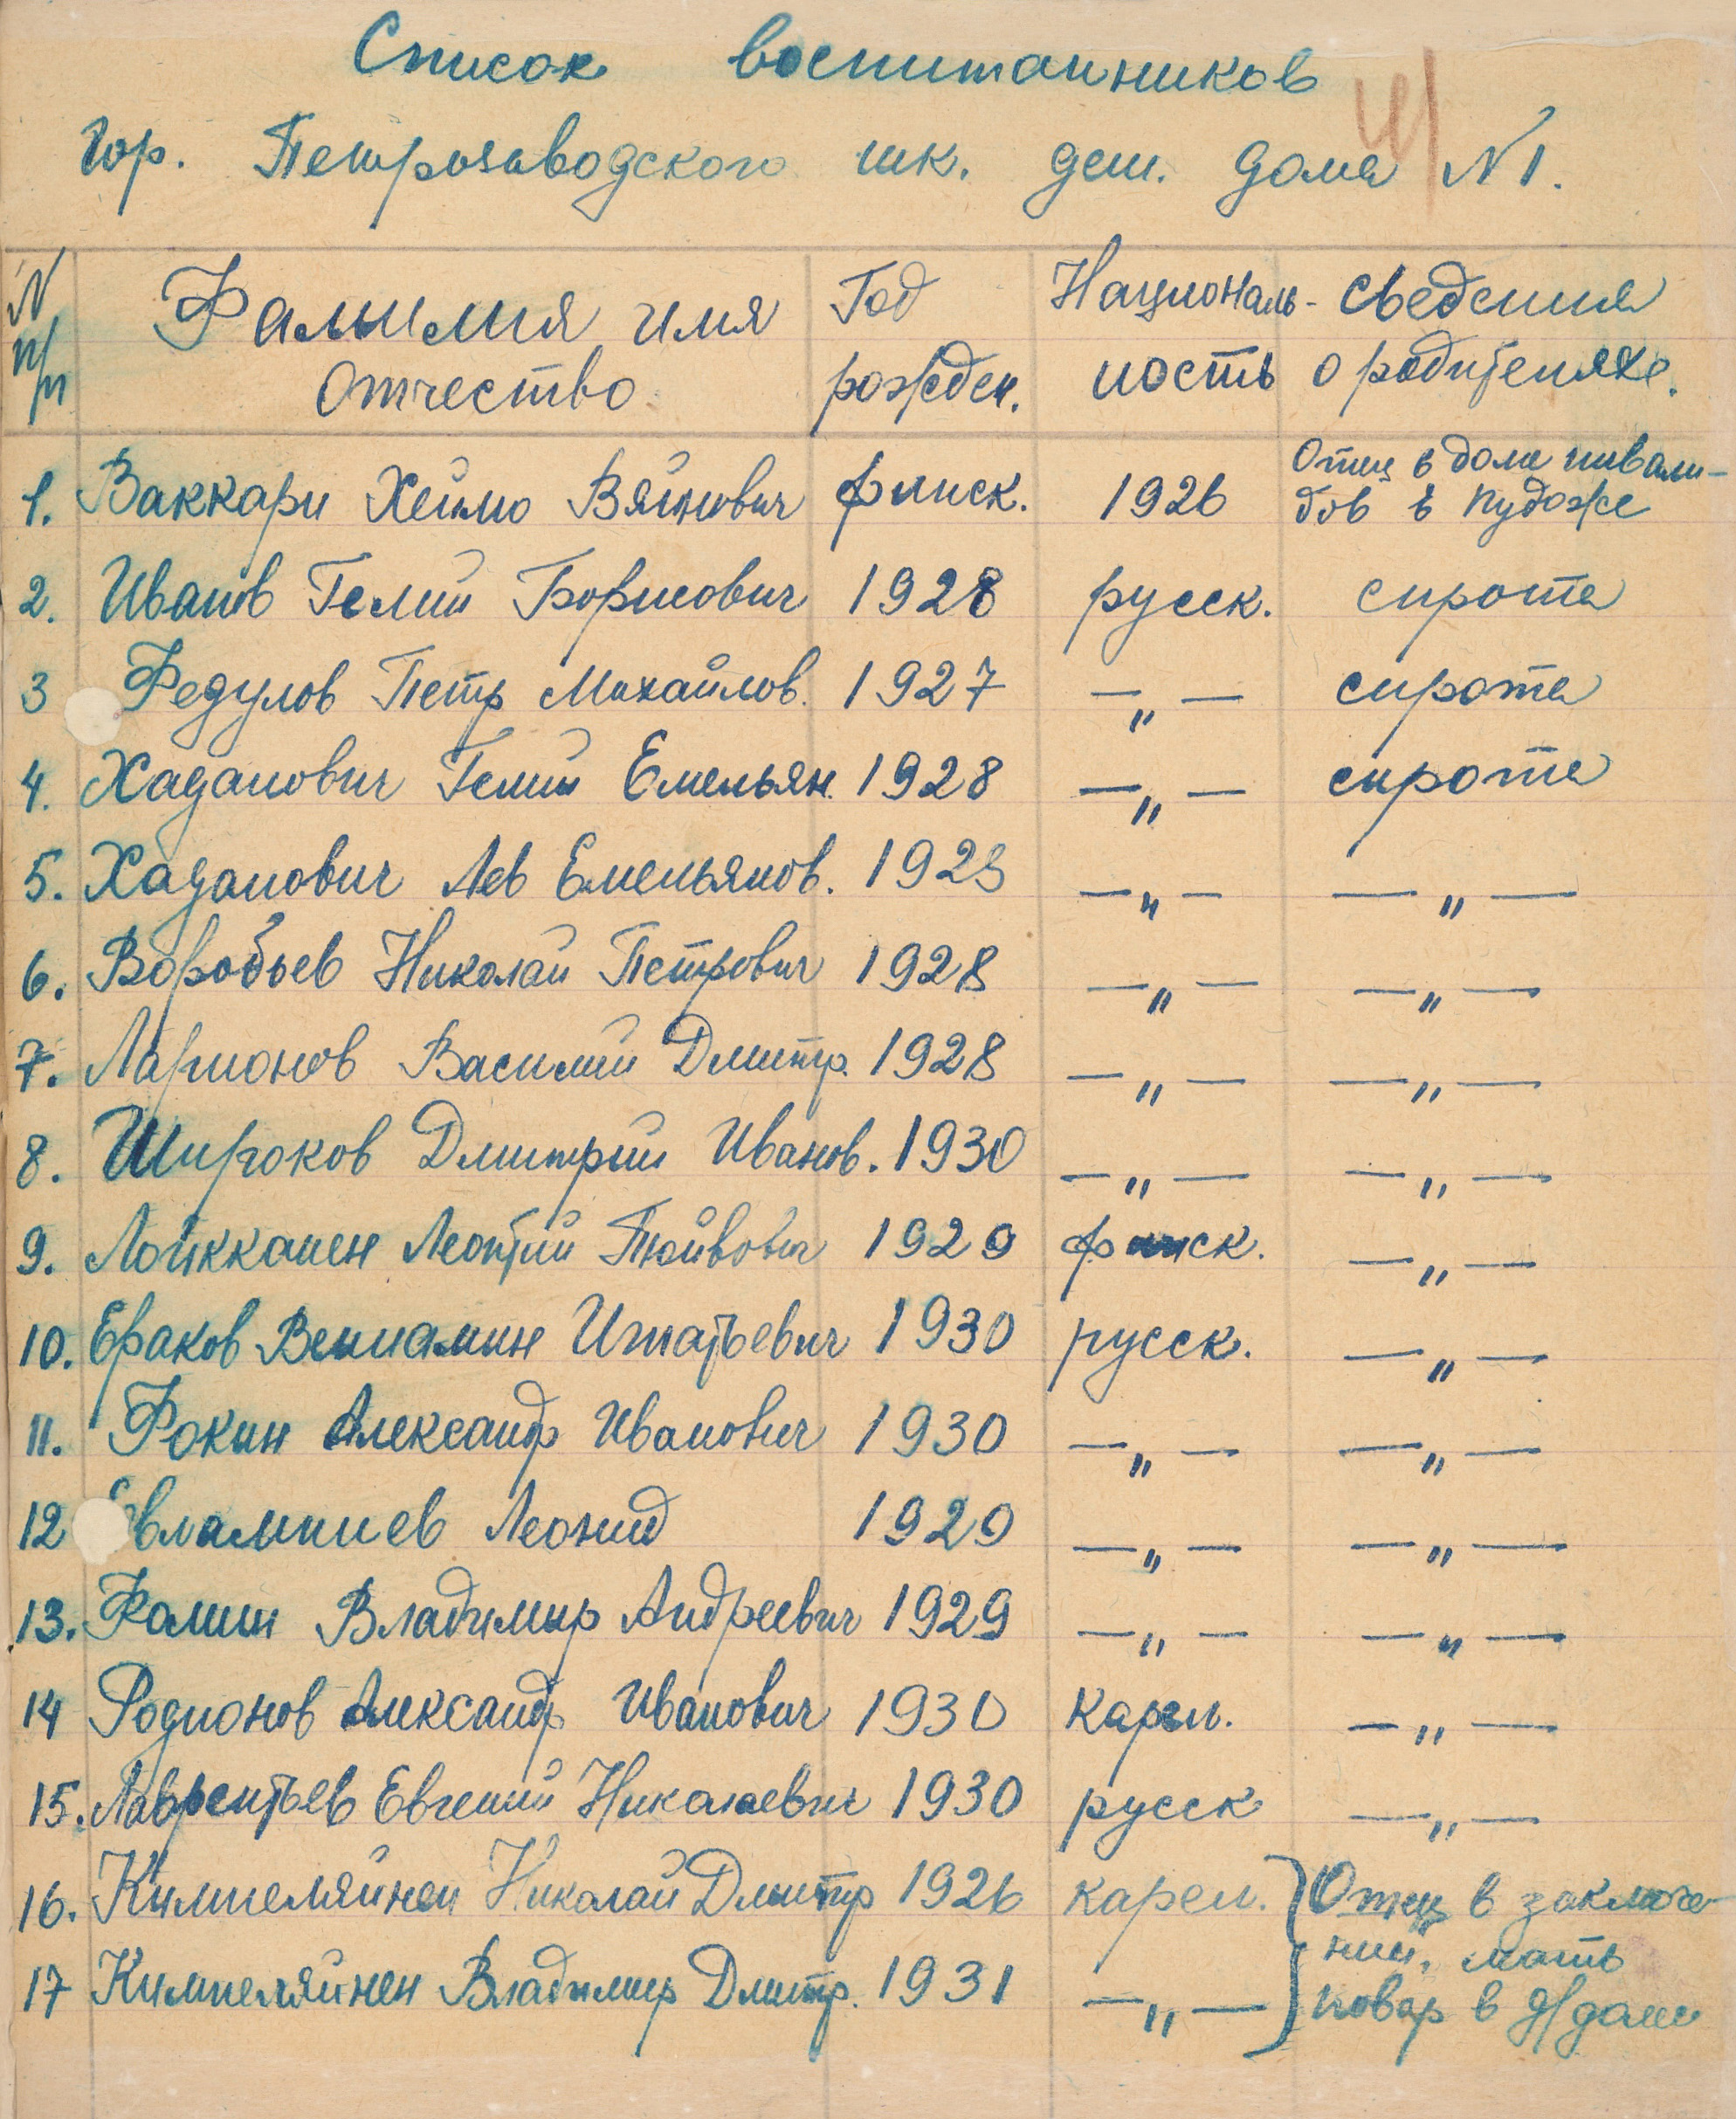 Список воспитанников
Гор. Петрозаводского шк. дет. дома N1.
N п/п Фамилия имя Год Националь- Сведения
отчество рожден. ность о родителях.
Отец в доме инвали-
1. Ваккари Хеймо Вяйнович финск. 1926 дов в Пудоже
2. Иванов Гелий Борисович 1928 русск. сирота
3 Федулов Петр Михайлов. 1927 —„— сирота
4. Хаданович Гелий Емельян. 1928 —„— сирота
5. Хаданович Лев Емельянов. 1928 —„— —„—
6. Воробьев Николай Петрович 1928 —„— —„—
7. Ларионов Василий Дмитр. 1928 —„— —„—
8. Широков Дмитрий Иванов. 1930 —„— —„—
9. Лойкканен Леонтий Тойвович 1929 финск. —„—
10. Ераков Вениамин Игнатьевич 1930 русск. —„—
11. Фокин Александр Иванович 1930 —„— —„—
12 Евлампиев Леонид 1929 —„— —„—
13. Фалин Владимир Андреевич 1929 —„— —„—
14 Родионов Александр Иванович 1930 карел. —„—
15. Лаврентьев Евгений Николаевич 1930 русск —„—
16. Кимпеляйнен Николай Дмитр 1926 карел. Отец в заключе-
нии, мать
17 Кимпеляйнен Владимир Дмитр. 1931 —„— повар в д/доме